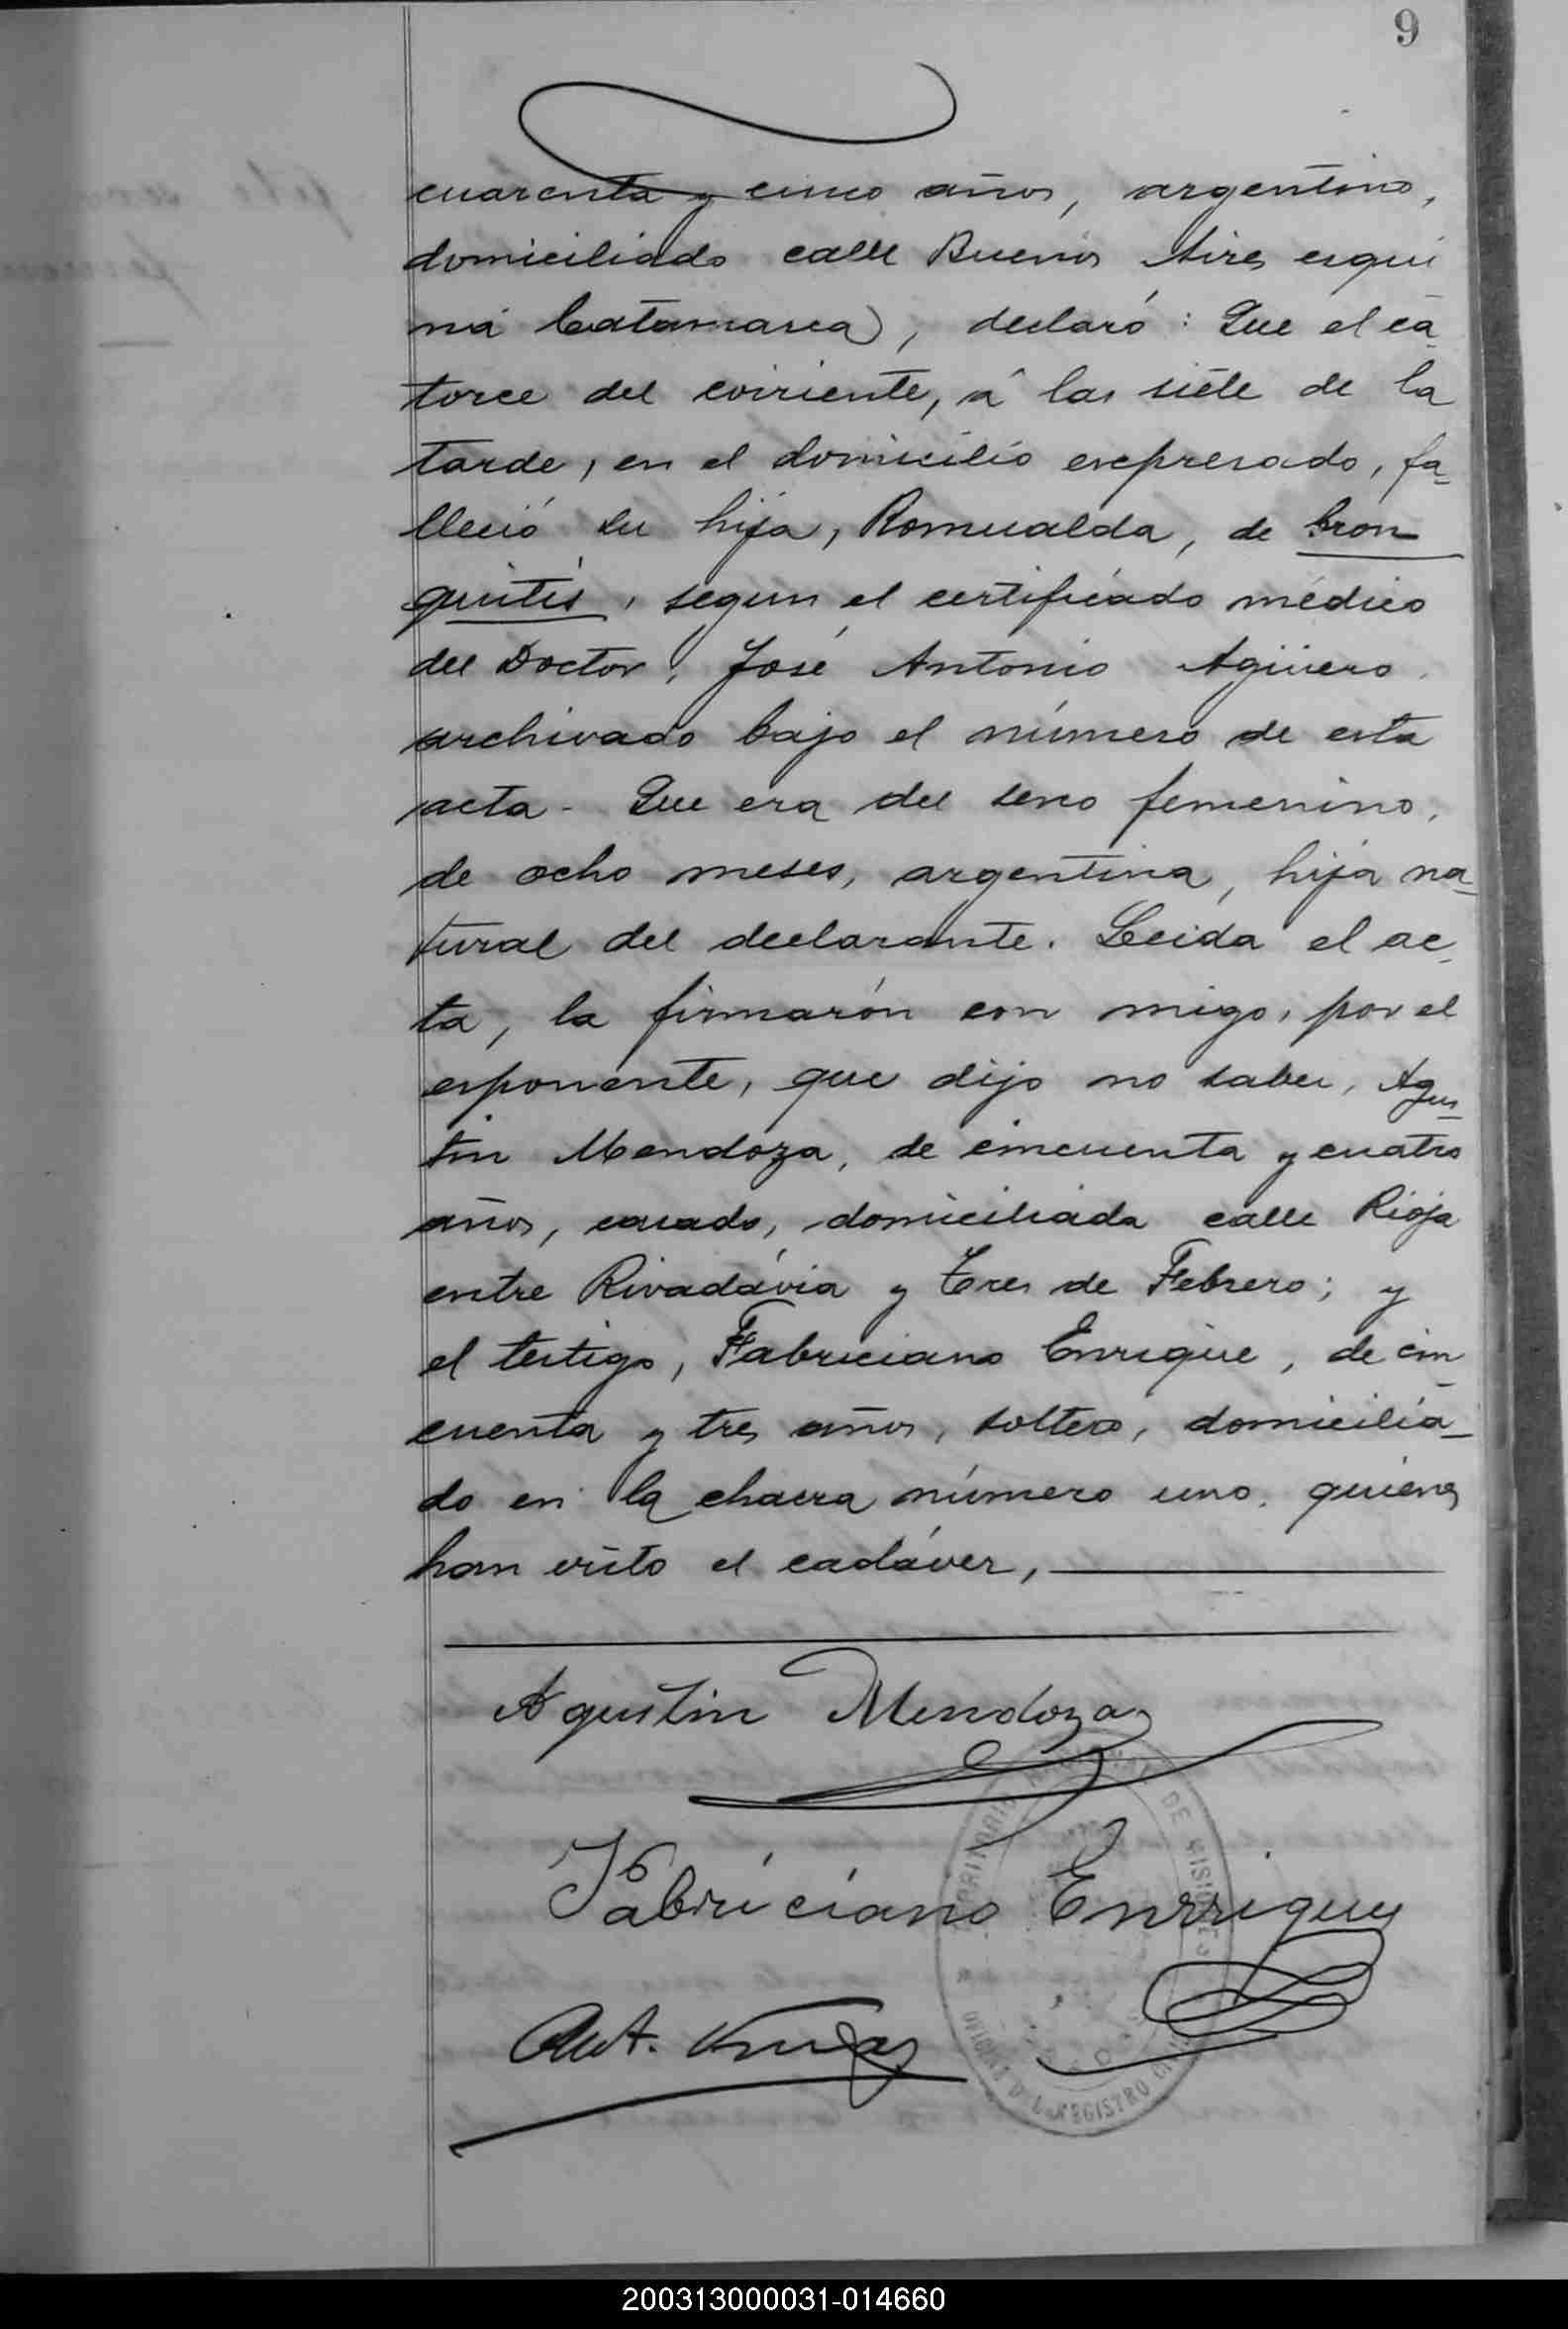 9
cuarenta y cinco años, argentino,
domiciliado calle Buenos Aires esqui
na Catamarca), declaró: Que el ca-
torce del corriente, á las siete de la
tarde, en el domicilio expresado, fa-
lleció su hija, Romualda, de bron
quitis, segun el certificado médico
del Doctor, José Antonio Agüero
archivado bajo el número de esta
acta - Que era del sexo femenino,
de ocho meses, argentina, hija na-
tural del declarante. Leida el ac-
ta, la firmarón con migo, por el
esponente, que dijo no saber, Agus-
tin Mendoza, de cincuenta y cuatro
años, casado, domiciliada calle Rioja
entre Rivadávia y Tres de Febrero; y
el testigo, Fabriciano Enrique, de cin
cuenta y tres años, soltero, domicilia-
do en la chacra número uno, quienes
han visto el cadáver,
Agustin Mendoza
Fabriciano Enrriquez
DE MISIONES
REGISTRO
200313000031-014660